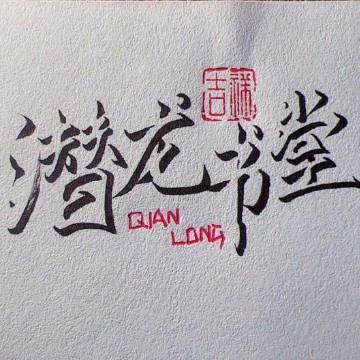 潜龙书堂
吉祥
QIAN
LONG